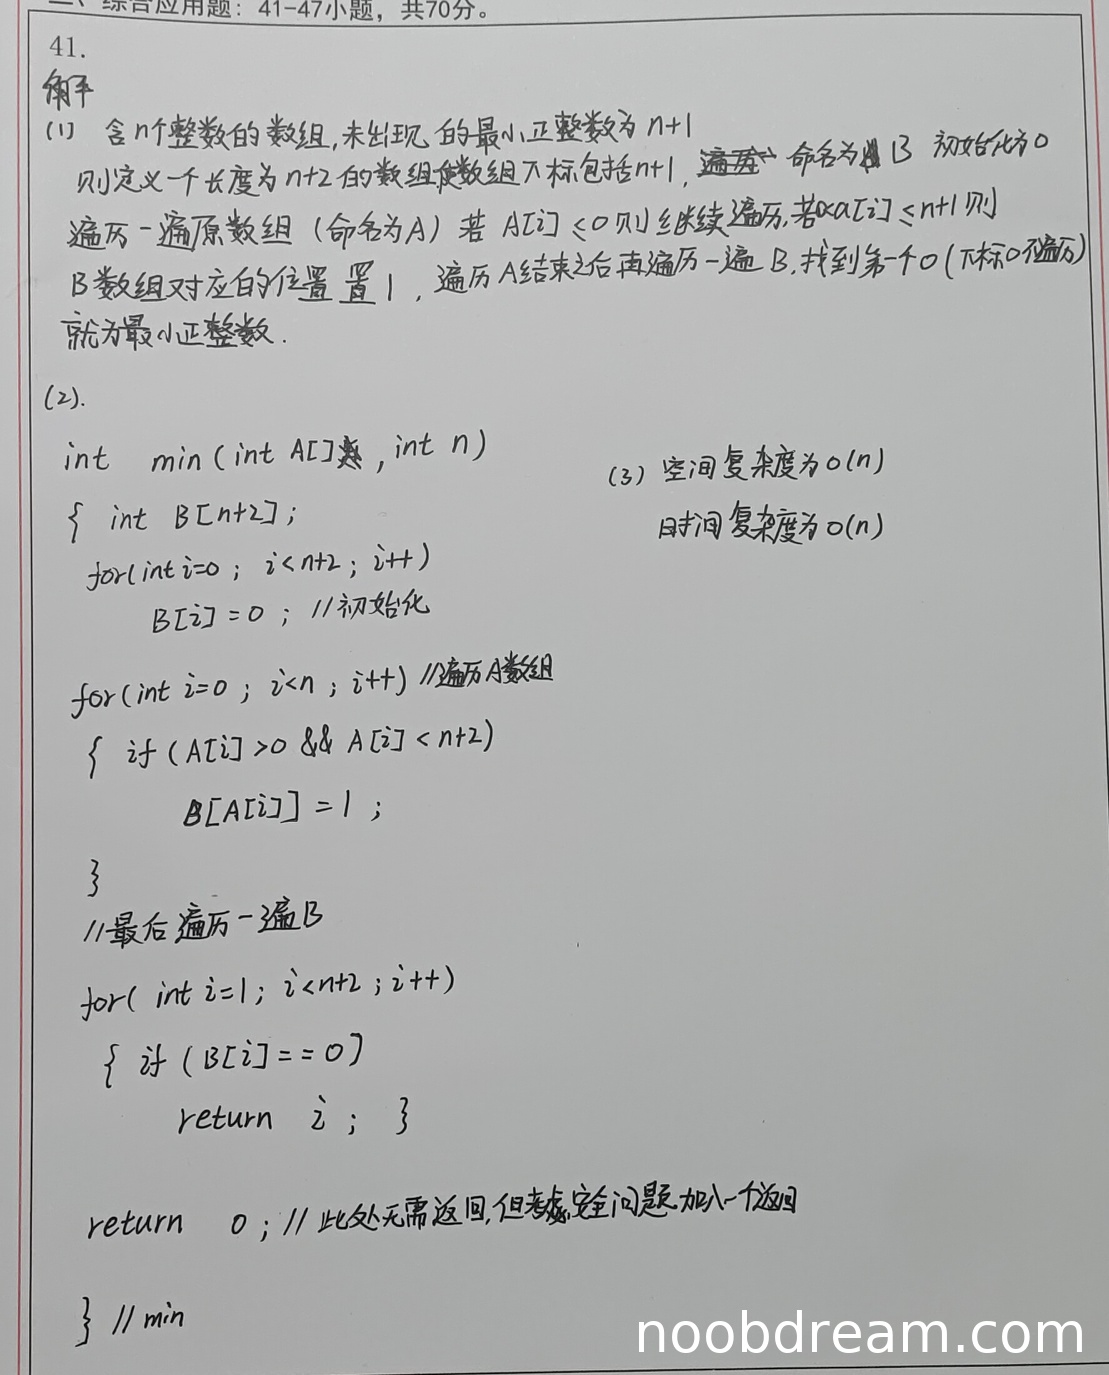 二、综合应用题：41-47小题，共70分。
41.
解
(1) 含n个整数的数组,未出现的最小正整数为n+1
则定义一个长度为n+2的数组使数组下标包括n+1, 命名为B 初始化为0
遍历一遍原数组（命名为A）若 A[i]≤0则继续遍历,若0<a[i]≤n+1则
B数组对应的位置 置1, 遍历A结束之后再遍历一遍B,找到第一个0(下标0不遍历)
就为最小正整数.
(2).
int min(int A[] ,int n)
{ int B[n+2];
for(int i=0; i<n+2; i++)
B[i]=0; //初始化
for(int i=0; i<n; i++) //遍历A数组
{ if(A[i]>0 && A[i]<n+2)
B[A[i]]=1;
}
//最后遍历一遍B
for( int i=1; i<n+2; i++)
{ if(B[i]==0)
return i; }
return 0; //此处无需返回,但考虑安全问题加入一个返回
} //min
(3) 空间复杂度为O(n)
时间复杂度为O(n)
noobdream.com